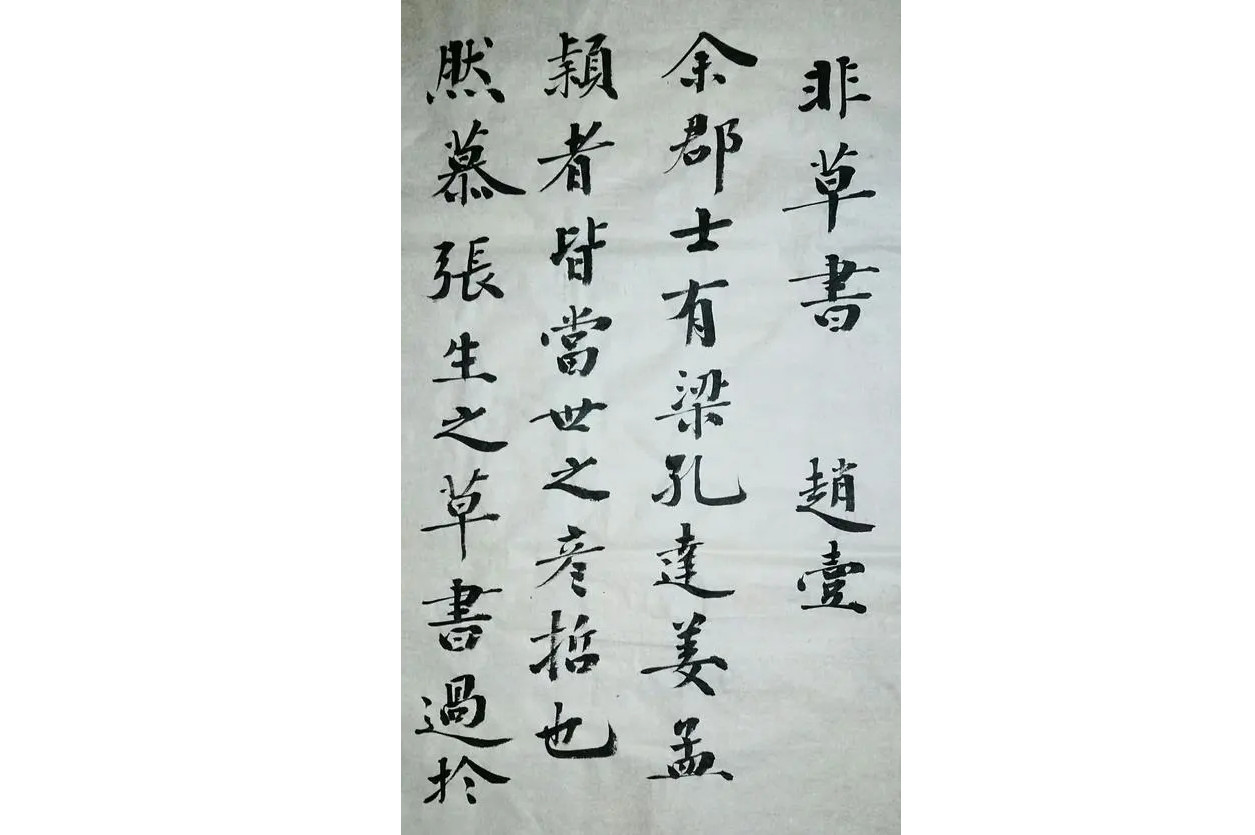 非草書 趙壹
余郡士有梁孔達姜孟
穎者皆當世之彦哲也
然慕張生之草書過於